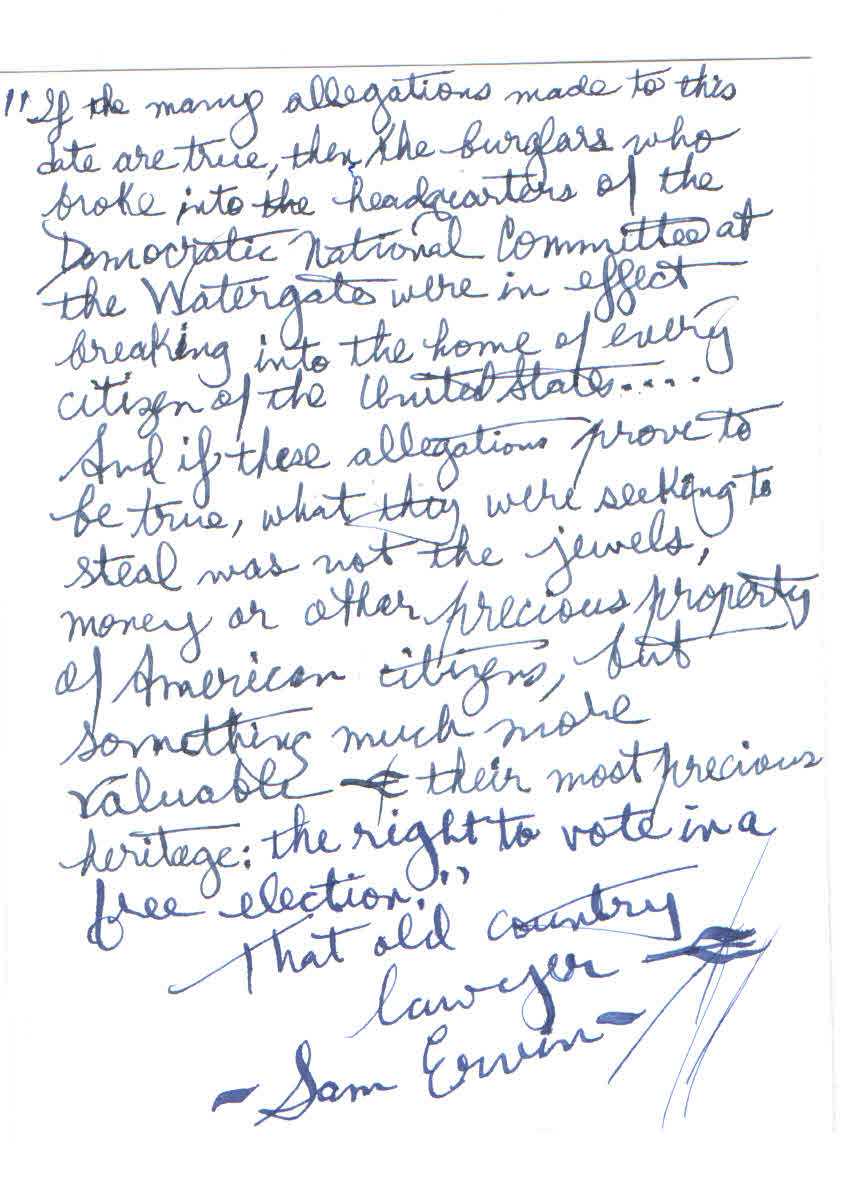 "If the many allegations made to this
date are true, then the burglars who
broke into the headquarters of the
Democratic National Committee at
the Watergate were in effect
breaking into the home of every
citizen of the United States.....
And if these allegations prove to
be true, what they were seeking to
steal was not the jewels,
money or other precious property
of American citizens, but
something much more
valuable — their most precious
heritage: the right to vote in a
free election."
That old country
lawyer —
- Sam Erwin -